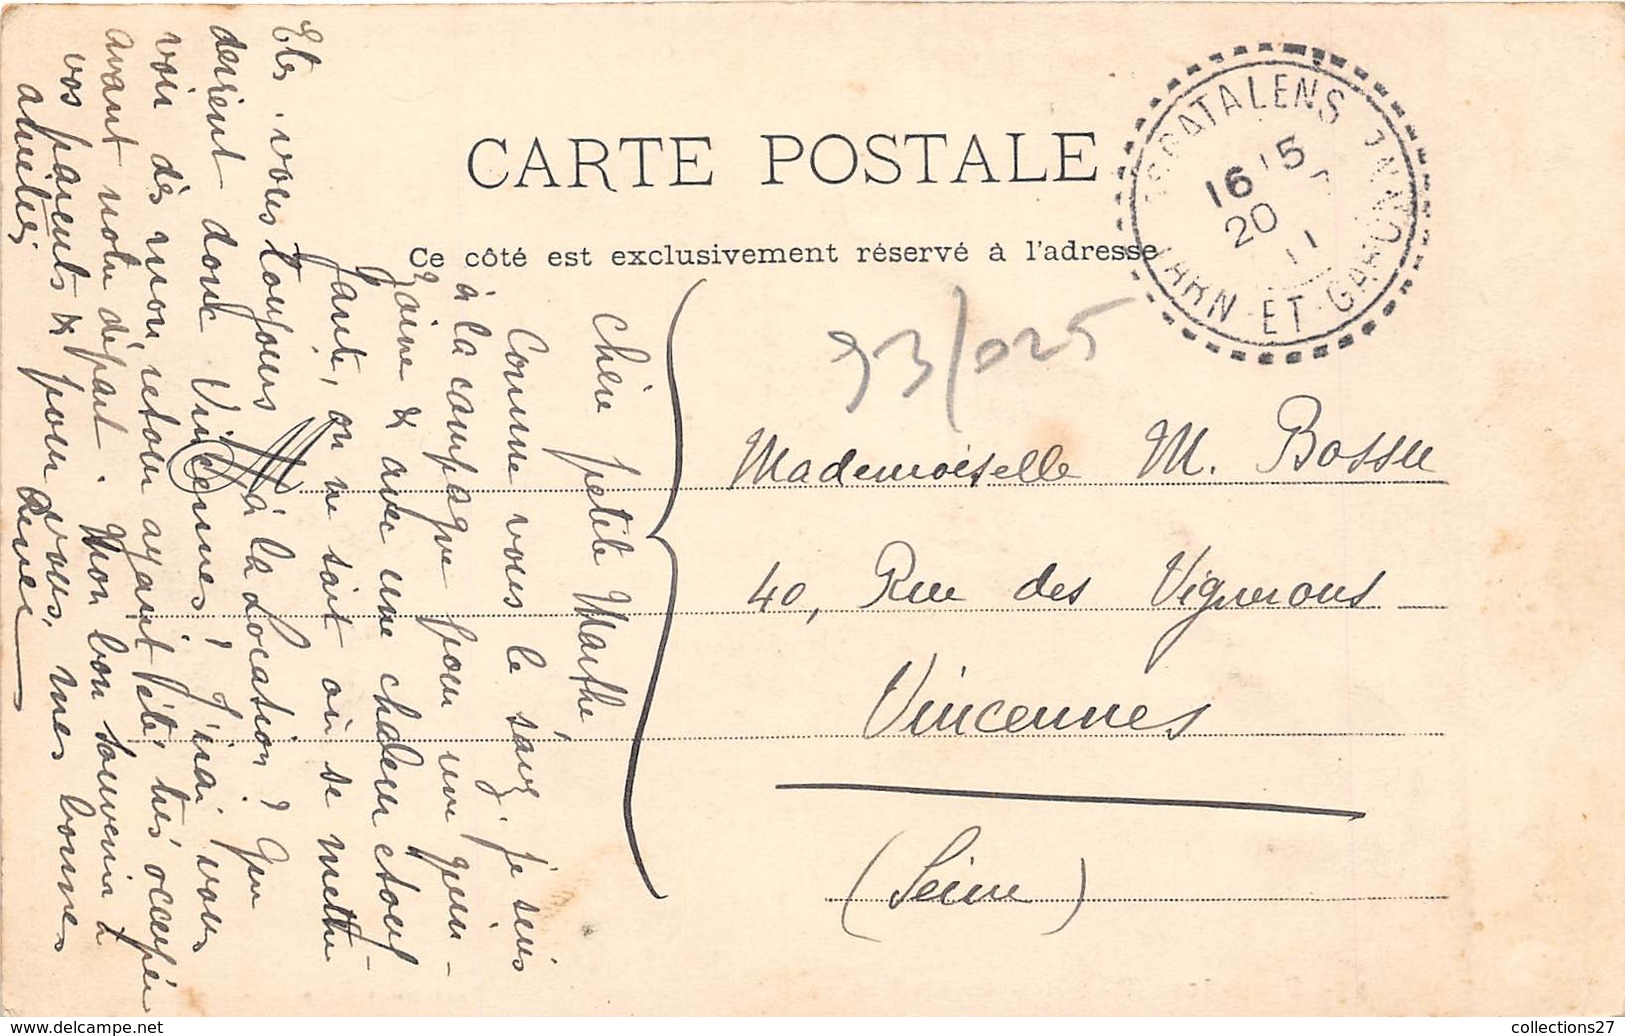 CARTE POSTALE
Ce côté est exclusivement réservé à l'adresse
ESCATALENS
16 15
20
11
TARN-ET-GARONNE
93/025
Mademoiselle M. Bossu
40, Rue des Vignerons
Vincennes
(Seine)
Chère petite Marthe
Comme vous le savez, je suis
à la campagne pour une quin-
zaine & avec une chaleur étouf-
fante, on ne sait où se mettre
Etes-vous toujours à la Location? Que
devient donc Vincennes! J'irai vous
voir dès mon retour ayant été très occupée
avant notre départ. Mon bon souvenir à
vos parents & pour vous, mes bonnes
amitiés
Renée
collections27